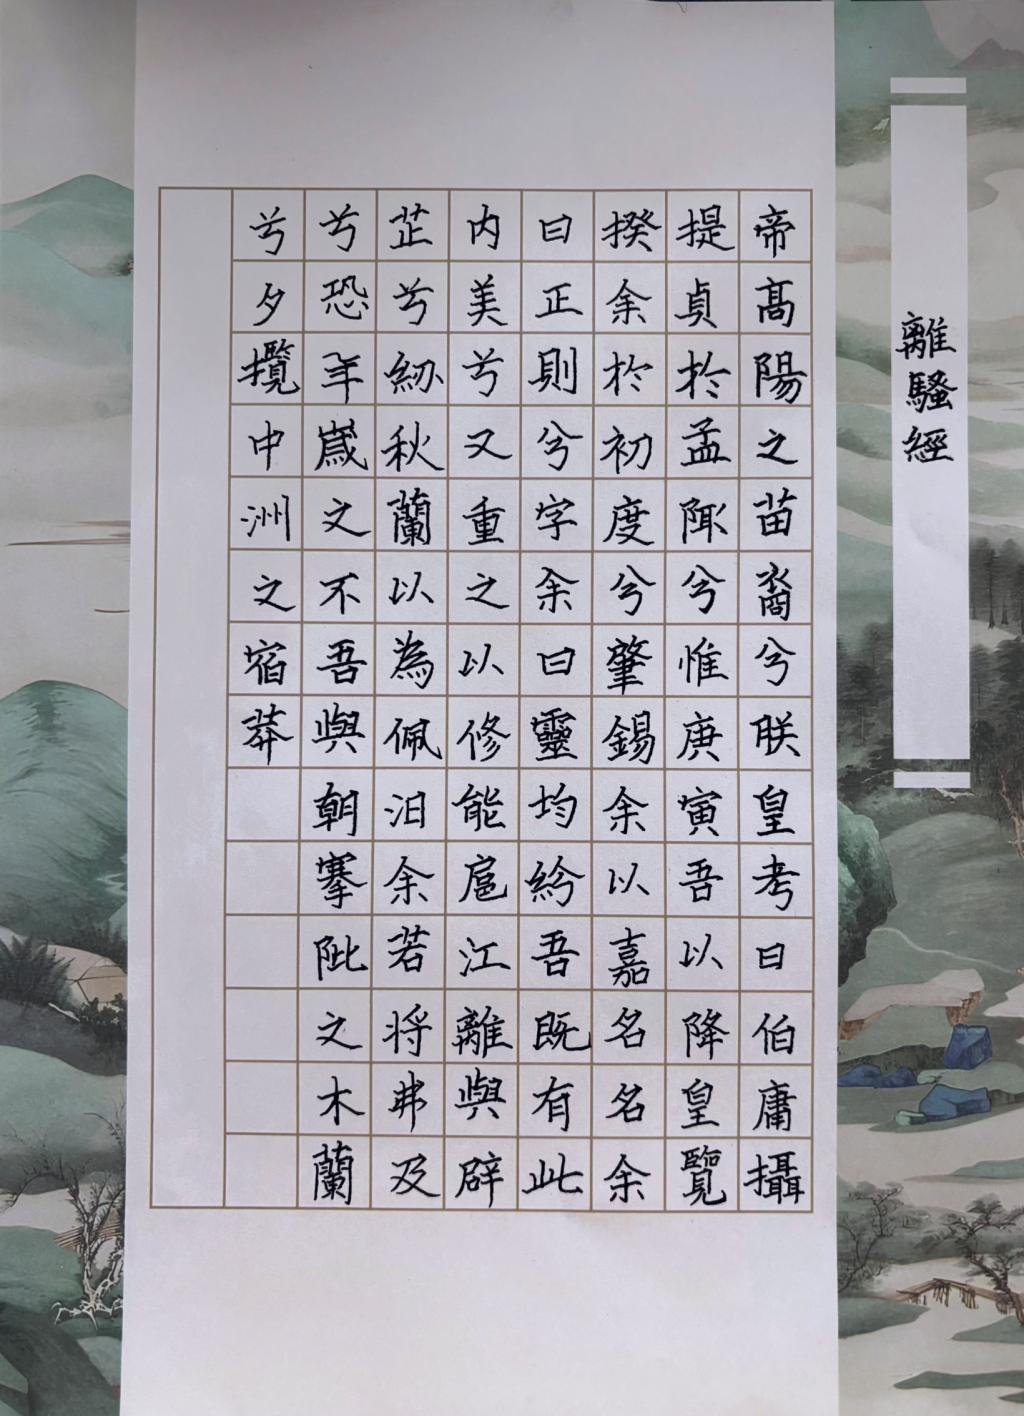 離騷經
帝高陽之苗裔兮朕皇考曰伯庸攝
提貞於孟陬兮惟庚寅吾以降皇覽
揆余於初度兮肇錫余以嘉名名余
曰正則兮字余曰靈均紛吾既有此
内美兮又重之以修能扈江離與辟
芷兮紉秋蘭以為佩汩余若将弗及
兮恐年歲之不吾與朝搴阰之木蘭
兮夕攬中洲之宿莽